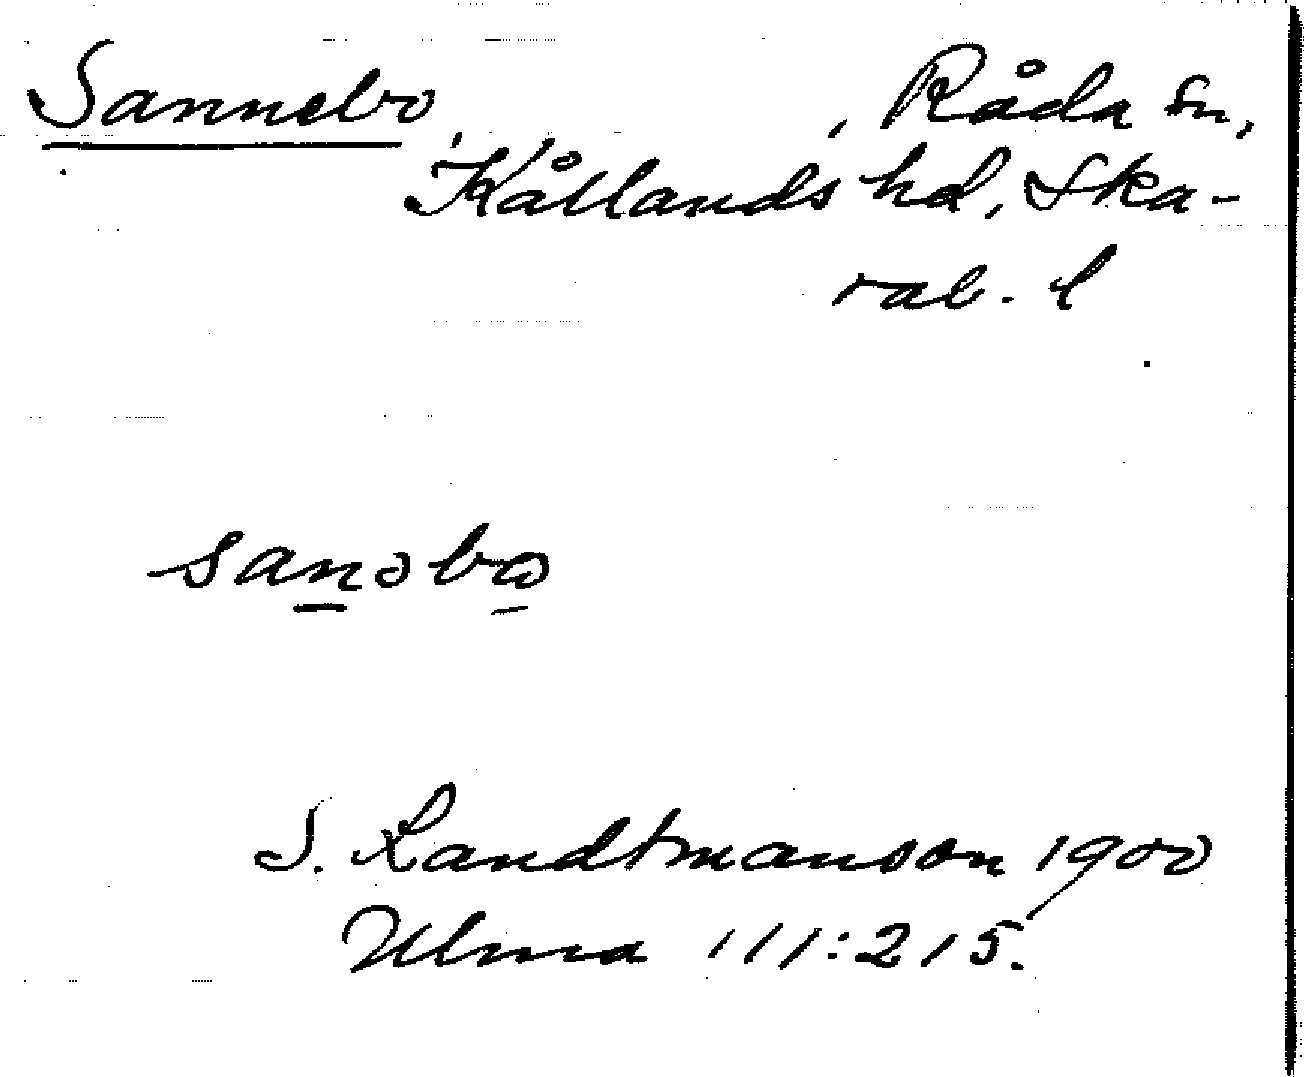 Sannebo, Råda sn,
Kållands hd, Ska-
rab. l
sanəbω
S. Landtmanson 1900
Ulma 111:215.